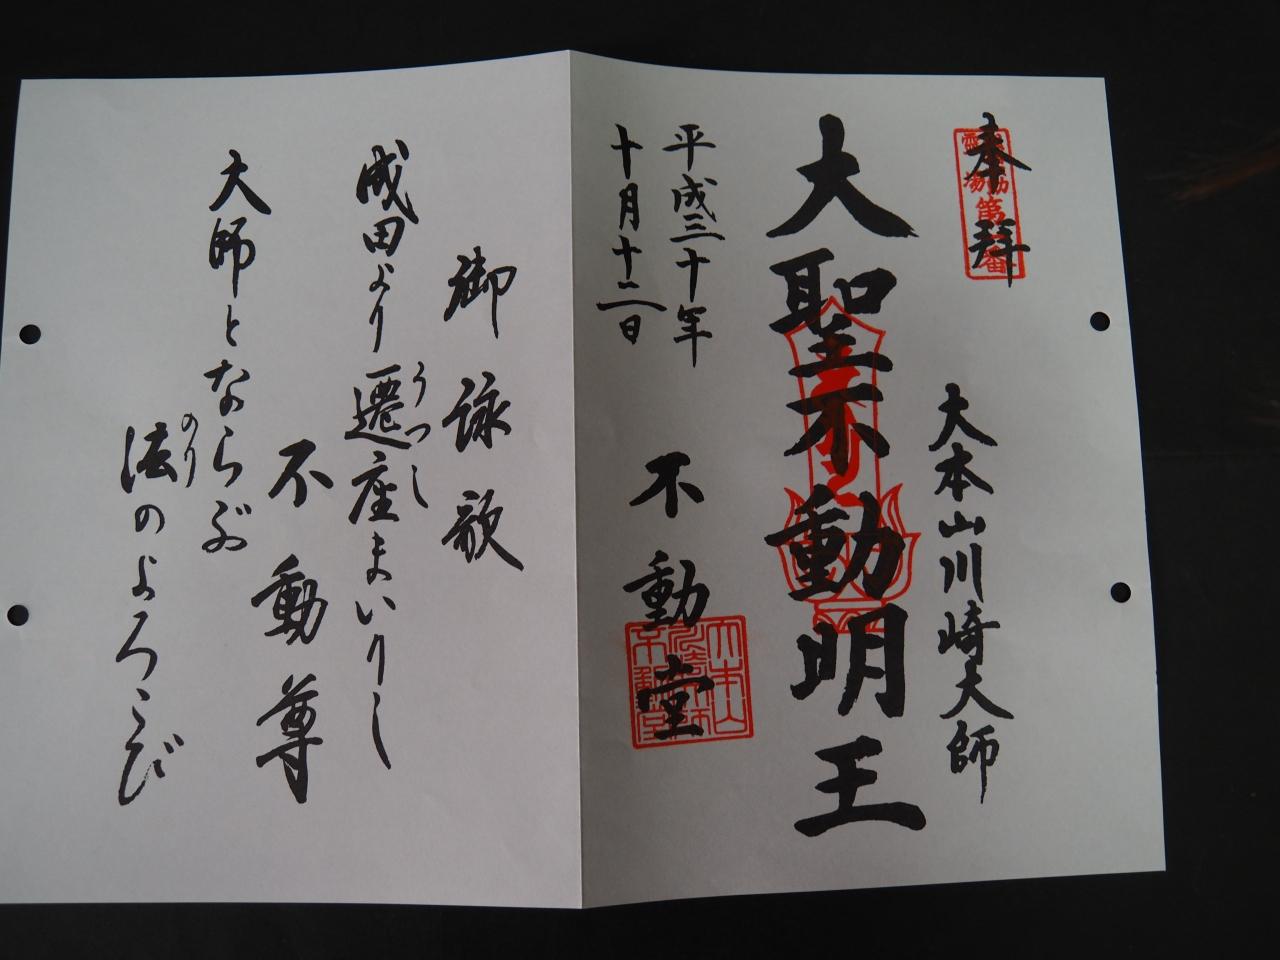 奉拝
大本山川崎大師
大聖不動明王
平成三十年
十月十二日
不動堂
御詠歌
成田より遷座まいりし
うつし
不動尊
大師とならぶ
法のよろこび
のり